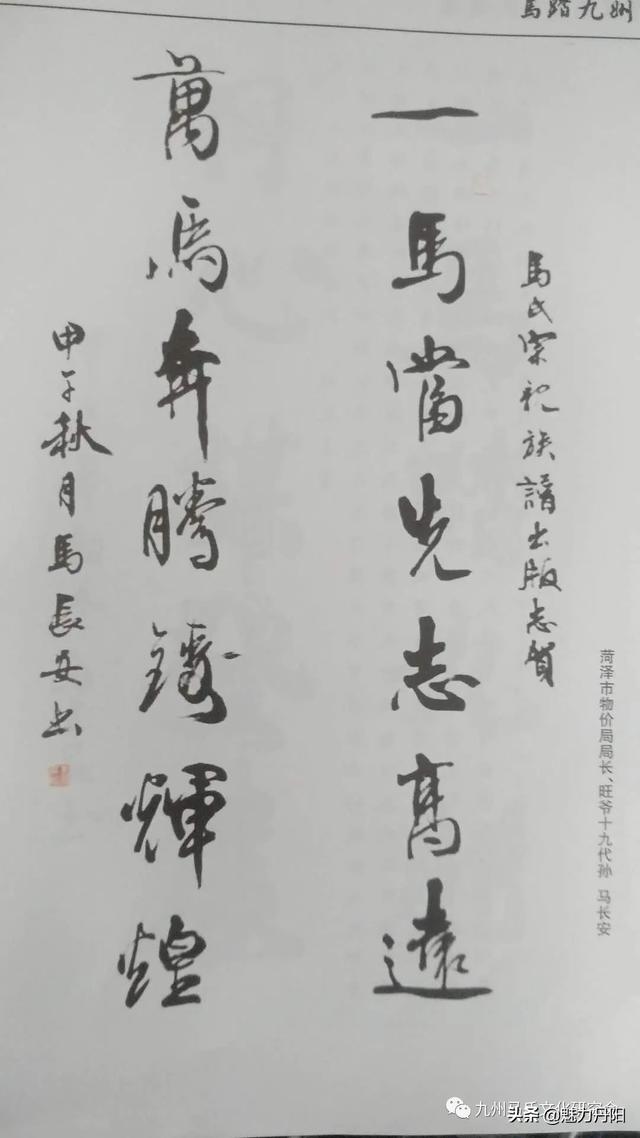 馬踏九州
馬氏宗祀族譜出版志賀
一馬當先志高遠
萬馬奔騰鑄輝煌
甲午秋月馬長安书
菏泽市物价局局长、旺爷十九代孙 马长安
九州马氏文化研究会
头条 @魅力丹阳